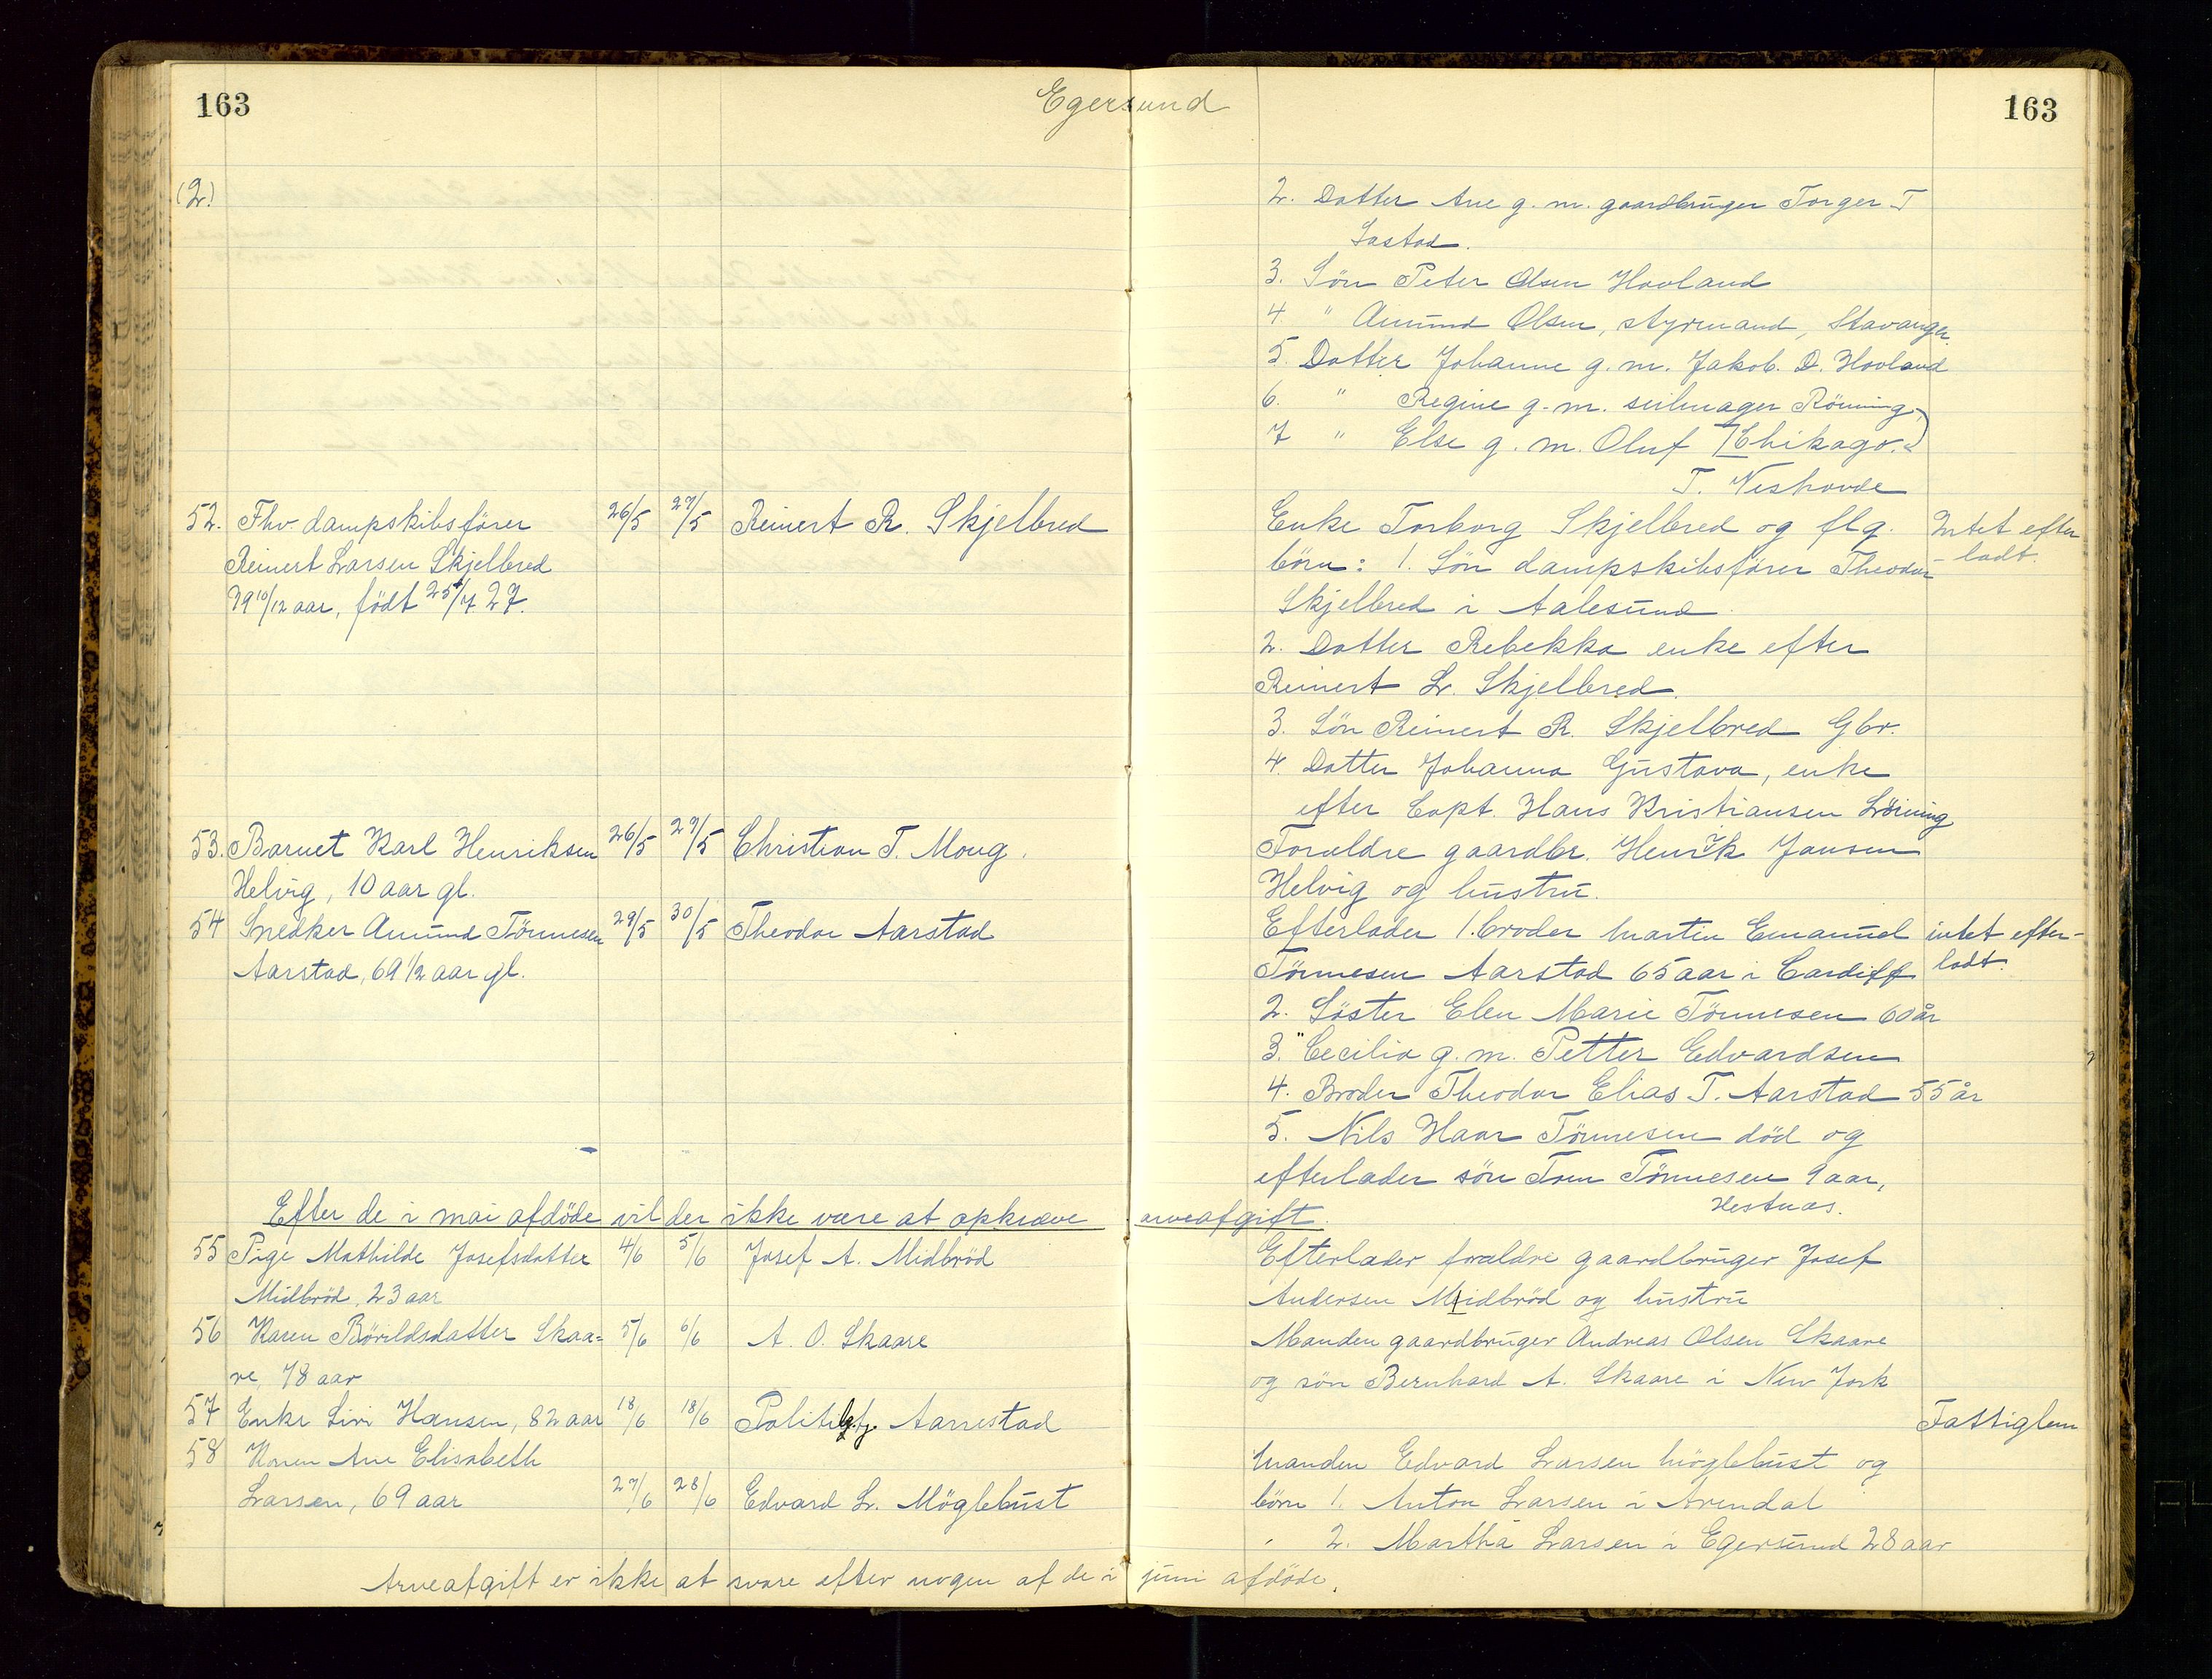 163
Egersund
163
(2)
2. Datter Ane g. m. gaardbruger Torger T
Sastad.
3. Søn Peter Olsen Hovland
4. " Amund Olsen, styrmand, Stavanger
5. Datter Johanne g. m. Jakob D. Hovland
6. " Regine g. m. seilmager Rönning,
7 " Else g. m. Oluf [Chikago.
T. Neshovde
52. Fhv. dampskibsförer 26/5 27/5 Reinert R. Skjelbred Enke Torborg Skjelbred og flg. Intet efter
Reinert Larsen Skjelbred börn: 1. Sön dampskibsförer Theodor ladt.
79 10/12 aar, födt 25/7 27. Skjelbred i Aalesund
2. Datter Rebekka enke efter
Reinert L. Skjelbred.
3. Sön Reinert R. Skjelbred Gbr.
4. Datter Johanna Gustava, enke
efter Capt. Hans Kristiansen
53. Barnet Karl Henriksen 26/5 29/5 Christian T. Moug. Forældre gaardbr. Henrik Jansen
Helvig, 10 aar gl. Helvig og hustru.
54 Snedker Amund Tönnesen 29/5 30/5 Theodor Aarstad Efterlader 1. broder Martin Emanuel intet efter-
Aarstad, 69 1/2 aar gl. Tönnesen Aarstad 65 aar i Cardiff ladt.
2. Söster Elen Marie Tönnesen 60 år
3. " Cecilia g. m. Petter Edvardsen
4. Broder Theodor Elias T. Aarstad 55 år
5. Nils Haar Tönnesen död og
efterlader sön Tom Tönnesen 9 aar,
Hestnæs.
Efter de i mai afdöde vil der ikke være at opkræve arveafgift.
55 Pige Mathilde Josefsdatter 4/6 5/6 Josef A. Midbröd Efterlader forældre gaardbruger Josef
Midbröd, 23 aar Andersen Midbröd og hustru
56 Karen Böreldsdatter Skaa= 5/6 6/6 A. O. Skaare Manden gaardbruger Andreas Olsen Skaare
re, 78 aar og sön Bernhard A. Skaare i New Jork
57 Enke Siri Hansen, 82 aar 18/6 18/6 Politibtj. Aarrestad Fattiglem
58 Karen Ane Elisabeth Manden Edvard Larsen Möglebust og
Larsen, 69 aar 27/6 28/6 Edvard L. Möglebust börn 1. Anton Larsen i Arendal
2. Martha Larsen i Egersund 28 aar
Arveafgift er ikke at svare efter nogen af de i juni afdöde.